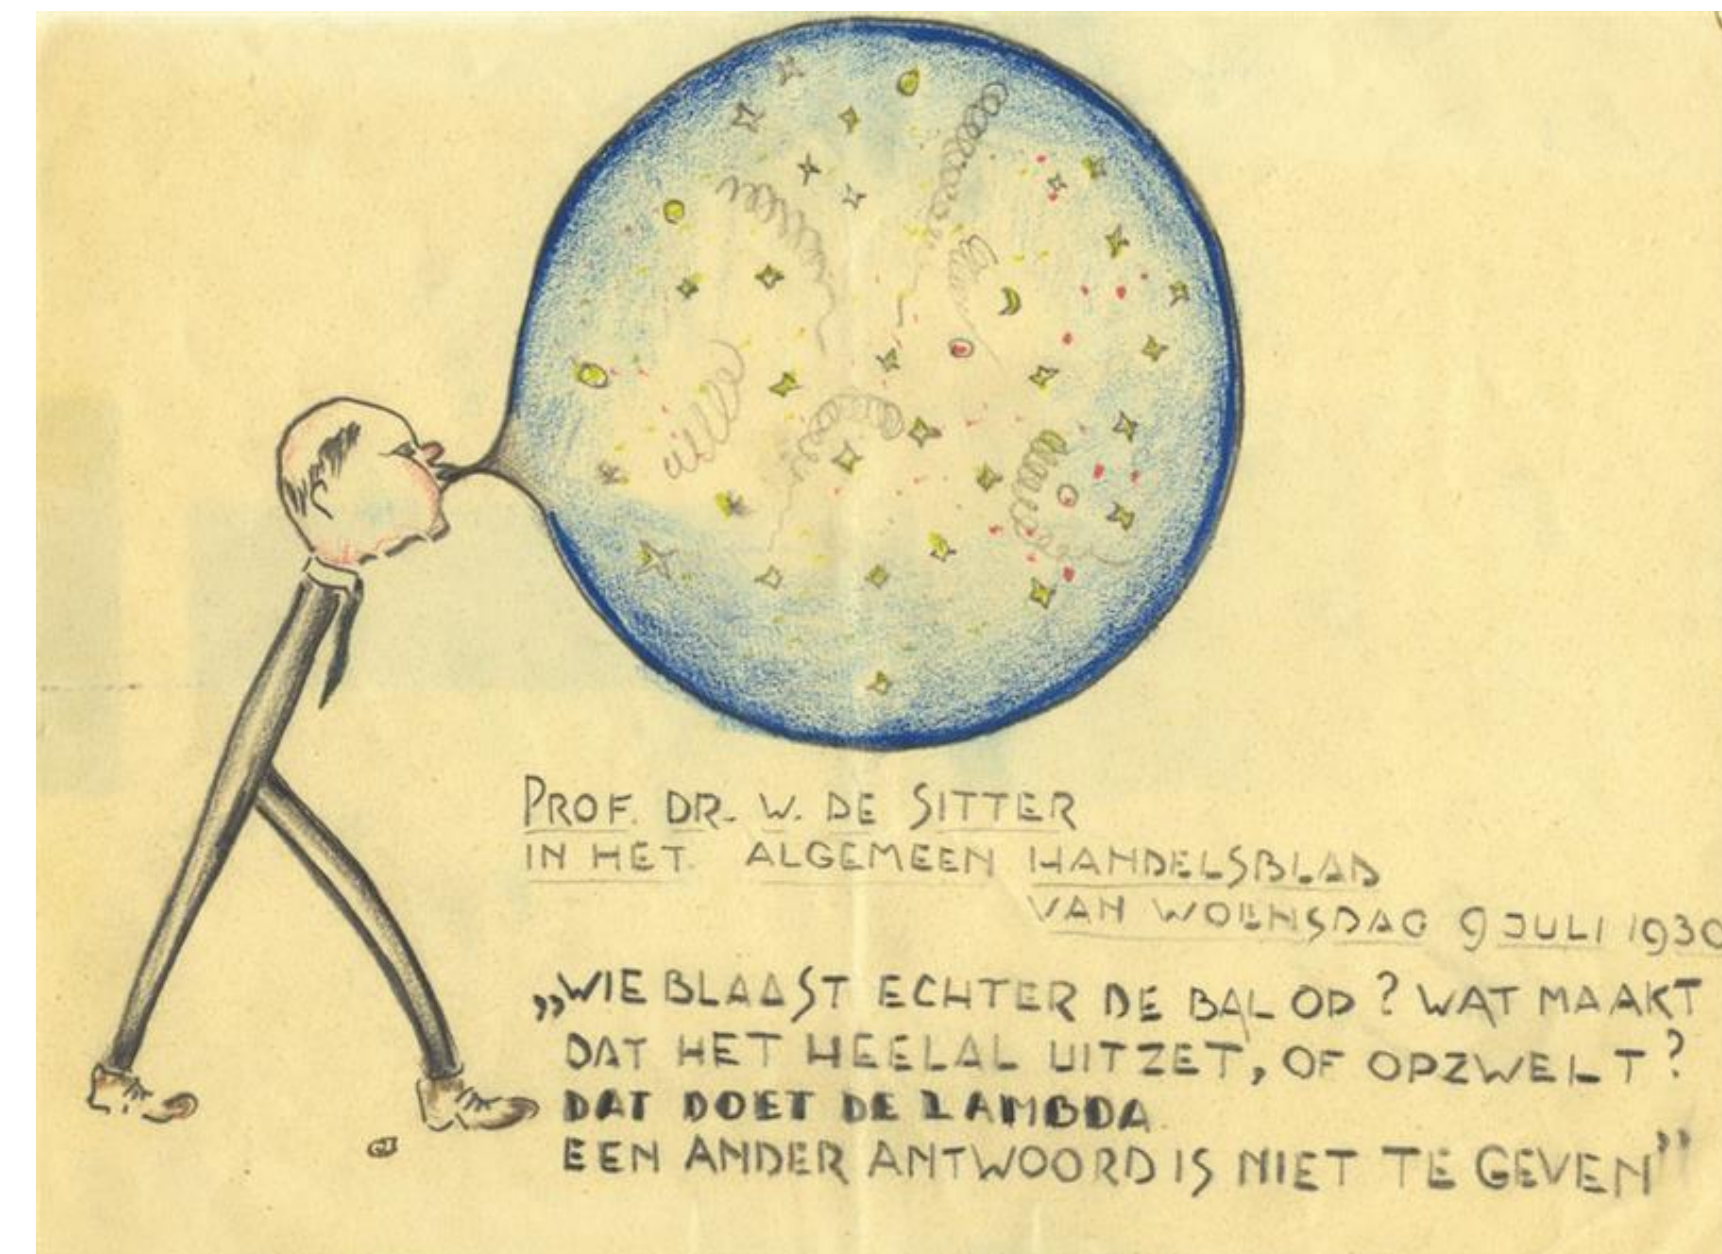 PROF. DR. W. DE SITTER
IN HET ALGEMEEN HANDELSBLAD
VAN WOENSDAG 9 JULI 1930
„WIE BLAAST ECHTER DE BAL OP? WAT MAAKT
DAT HET HEELAL UITZET, OF OPZWELT?
DAT DOET DE LAMBDA.
EEN ANDER ANTWOORD IS NIET TE GEVEN”